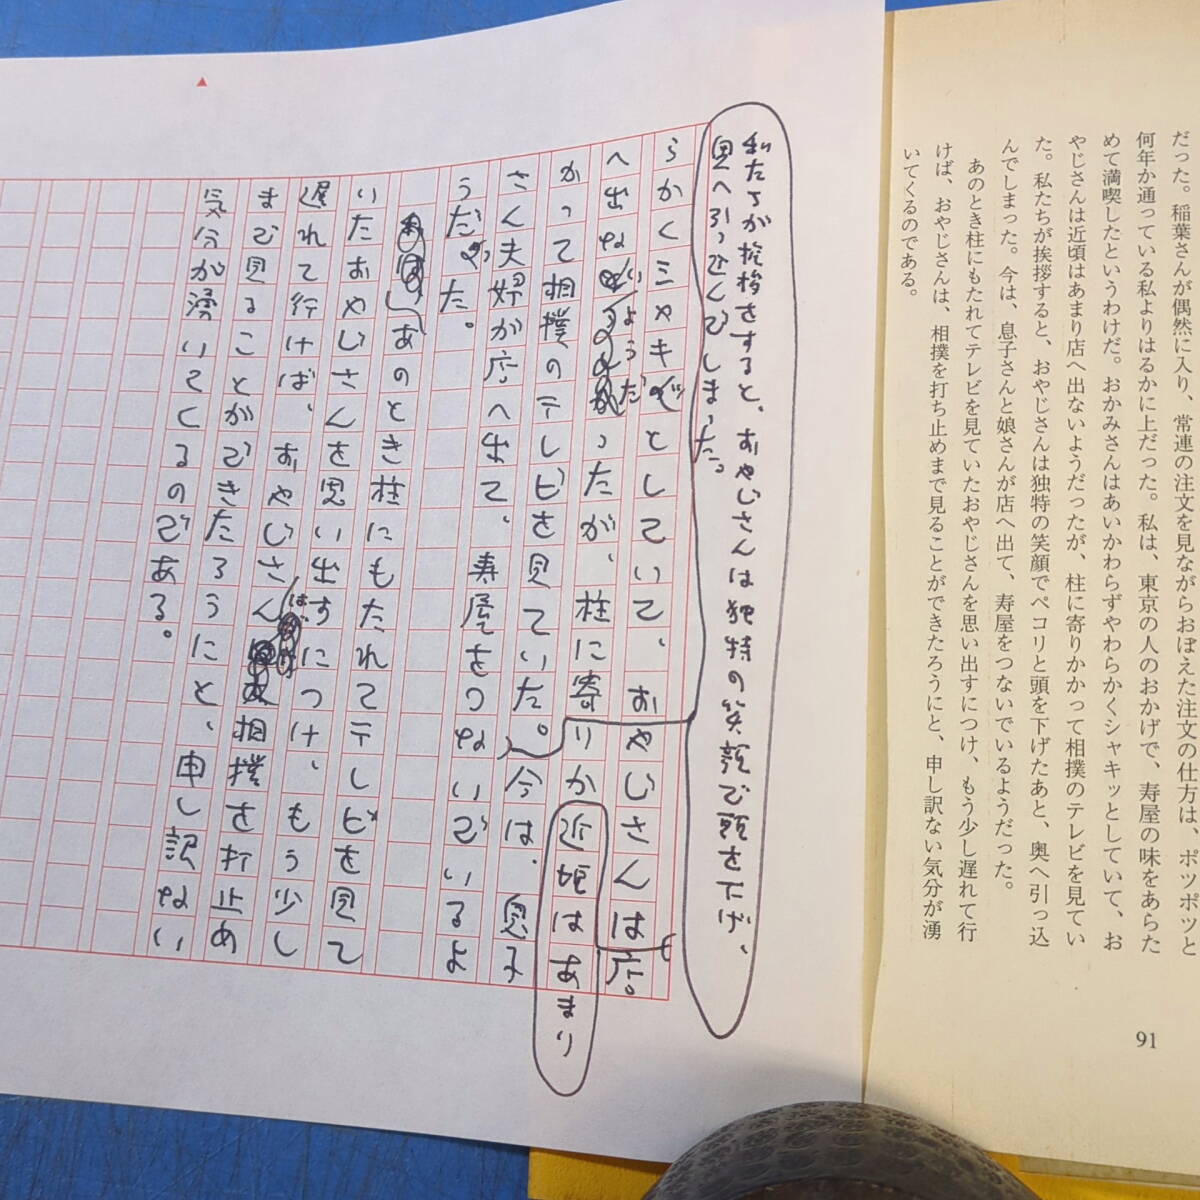 だった。稲葉さんが偶然に入り、常連の注文を見ながらおぼえた注文の仕方は、ポツポツと
何年か通っている私よりはるかに上だった。私は、東京の人のおかげで、寿屋の味をあらた
めて満喫したというわけだ。おかみさんはあいかわらずやわらかくシャキッとしていて、お
やじさんは近頃はあまり店へ出ないようだったが、柱に寄りかかって相撲のテレビを見てい
た。私たちが挨拶すると、おやじさんは独特の笑顔でペコリと頭を下げたあと、奥へ引っ込
んでしまった。今は、息子さんと娘さんが店へ出て、寿屋をつないでいるようだった。
あのとき柱にもたれてテレビを見ていたおやじさんを思い出すにつけ、もう少し遅れて行
けば、おやじさんは、相撲を打ち止めまで見ることができたろうにと、申し訳ない気分が湧
いてくるのである。
91
私たちが挨拶をすると、おやじさんは独特の笑顔で頭を下げ、
奥へ引っ込んでしまった。
らかくシャキッとしていて、おやじさんは店
へ出ないようだったが、柱に寄りか
近頃はあまり
かって相撲のテレビを見ていた。今は、息子
さん夫婦が店へ出て、寿屋をつないでいるよ
うだった。
あのとき柱にもたれてテレビを見て
いたおやじさんを思い出すにつけ、もう少し
遅れて行けば、おやじさんは相撲を打止め
まで見ることができたろうにと、申し訳ない
気分が湧いてくるのである。